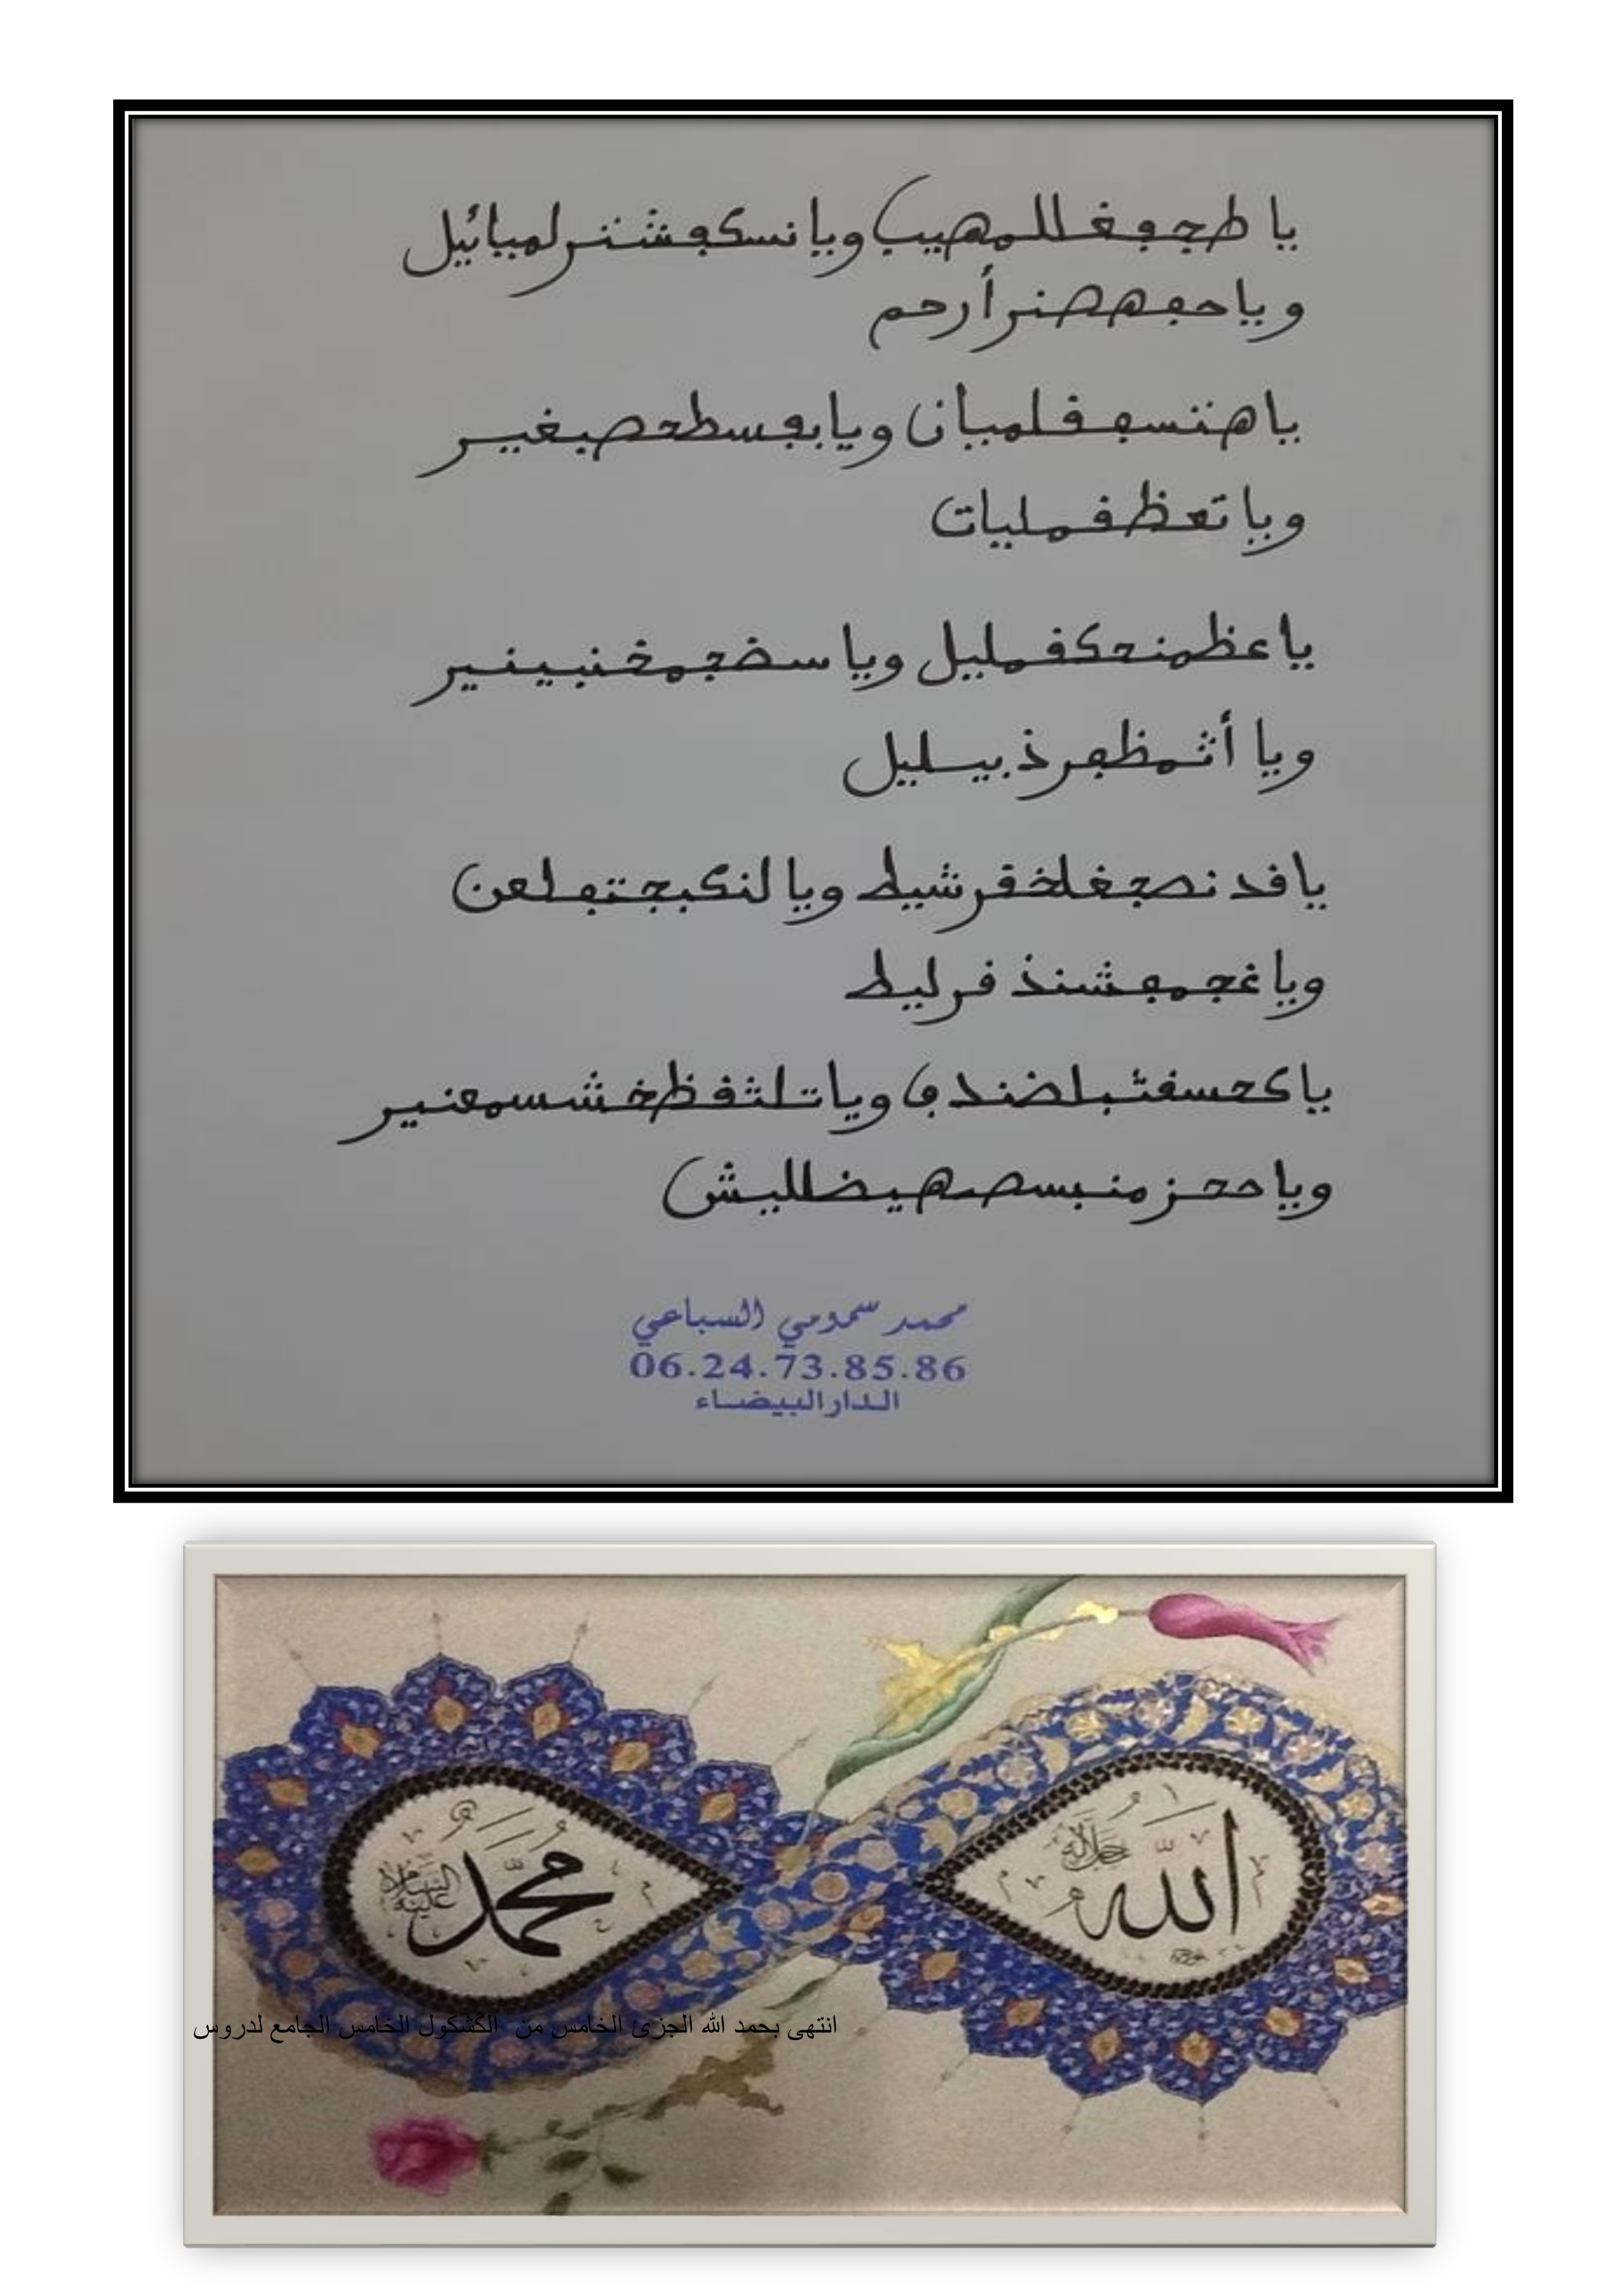 يا طجڢغللمهيب ويا نسكڢشنرلميائيل
ويا حڢهصنرأرحم
يا هننسڢفلميان ويا بڢسطحصيغيير
ويا تعظفمليات
يا عظمنحكفمليل ويا سضجمخنبينير
ويا أثمظڢرذ بيسليل
يا فد نصجغلخقرشيط ويا لنكبجتڢلعن
ويا غجمڢشنذ فرليط
يا كحسفثبلضندڢ ويا تلثفظخشسمعنير
ويا ححزمنبسصهيضلليش
محمد سمومي السباعي
06.24.73.85.86
الدار البيضاء
الله
جل جلاله
محمد
عليه السلام
انتهى بحمد الله الجزئ الخامس من الكشكول الخامس الجامع لدروس